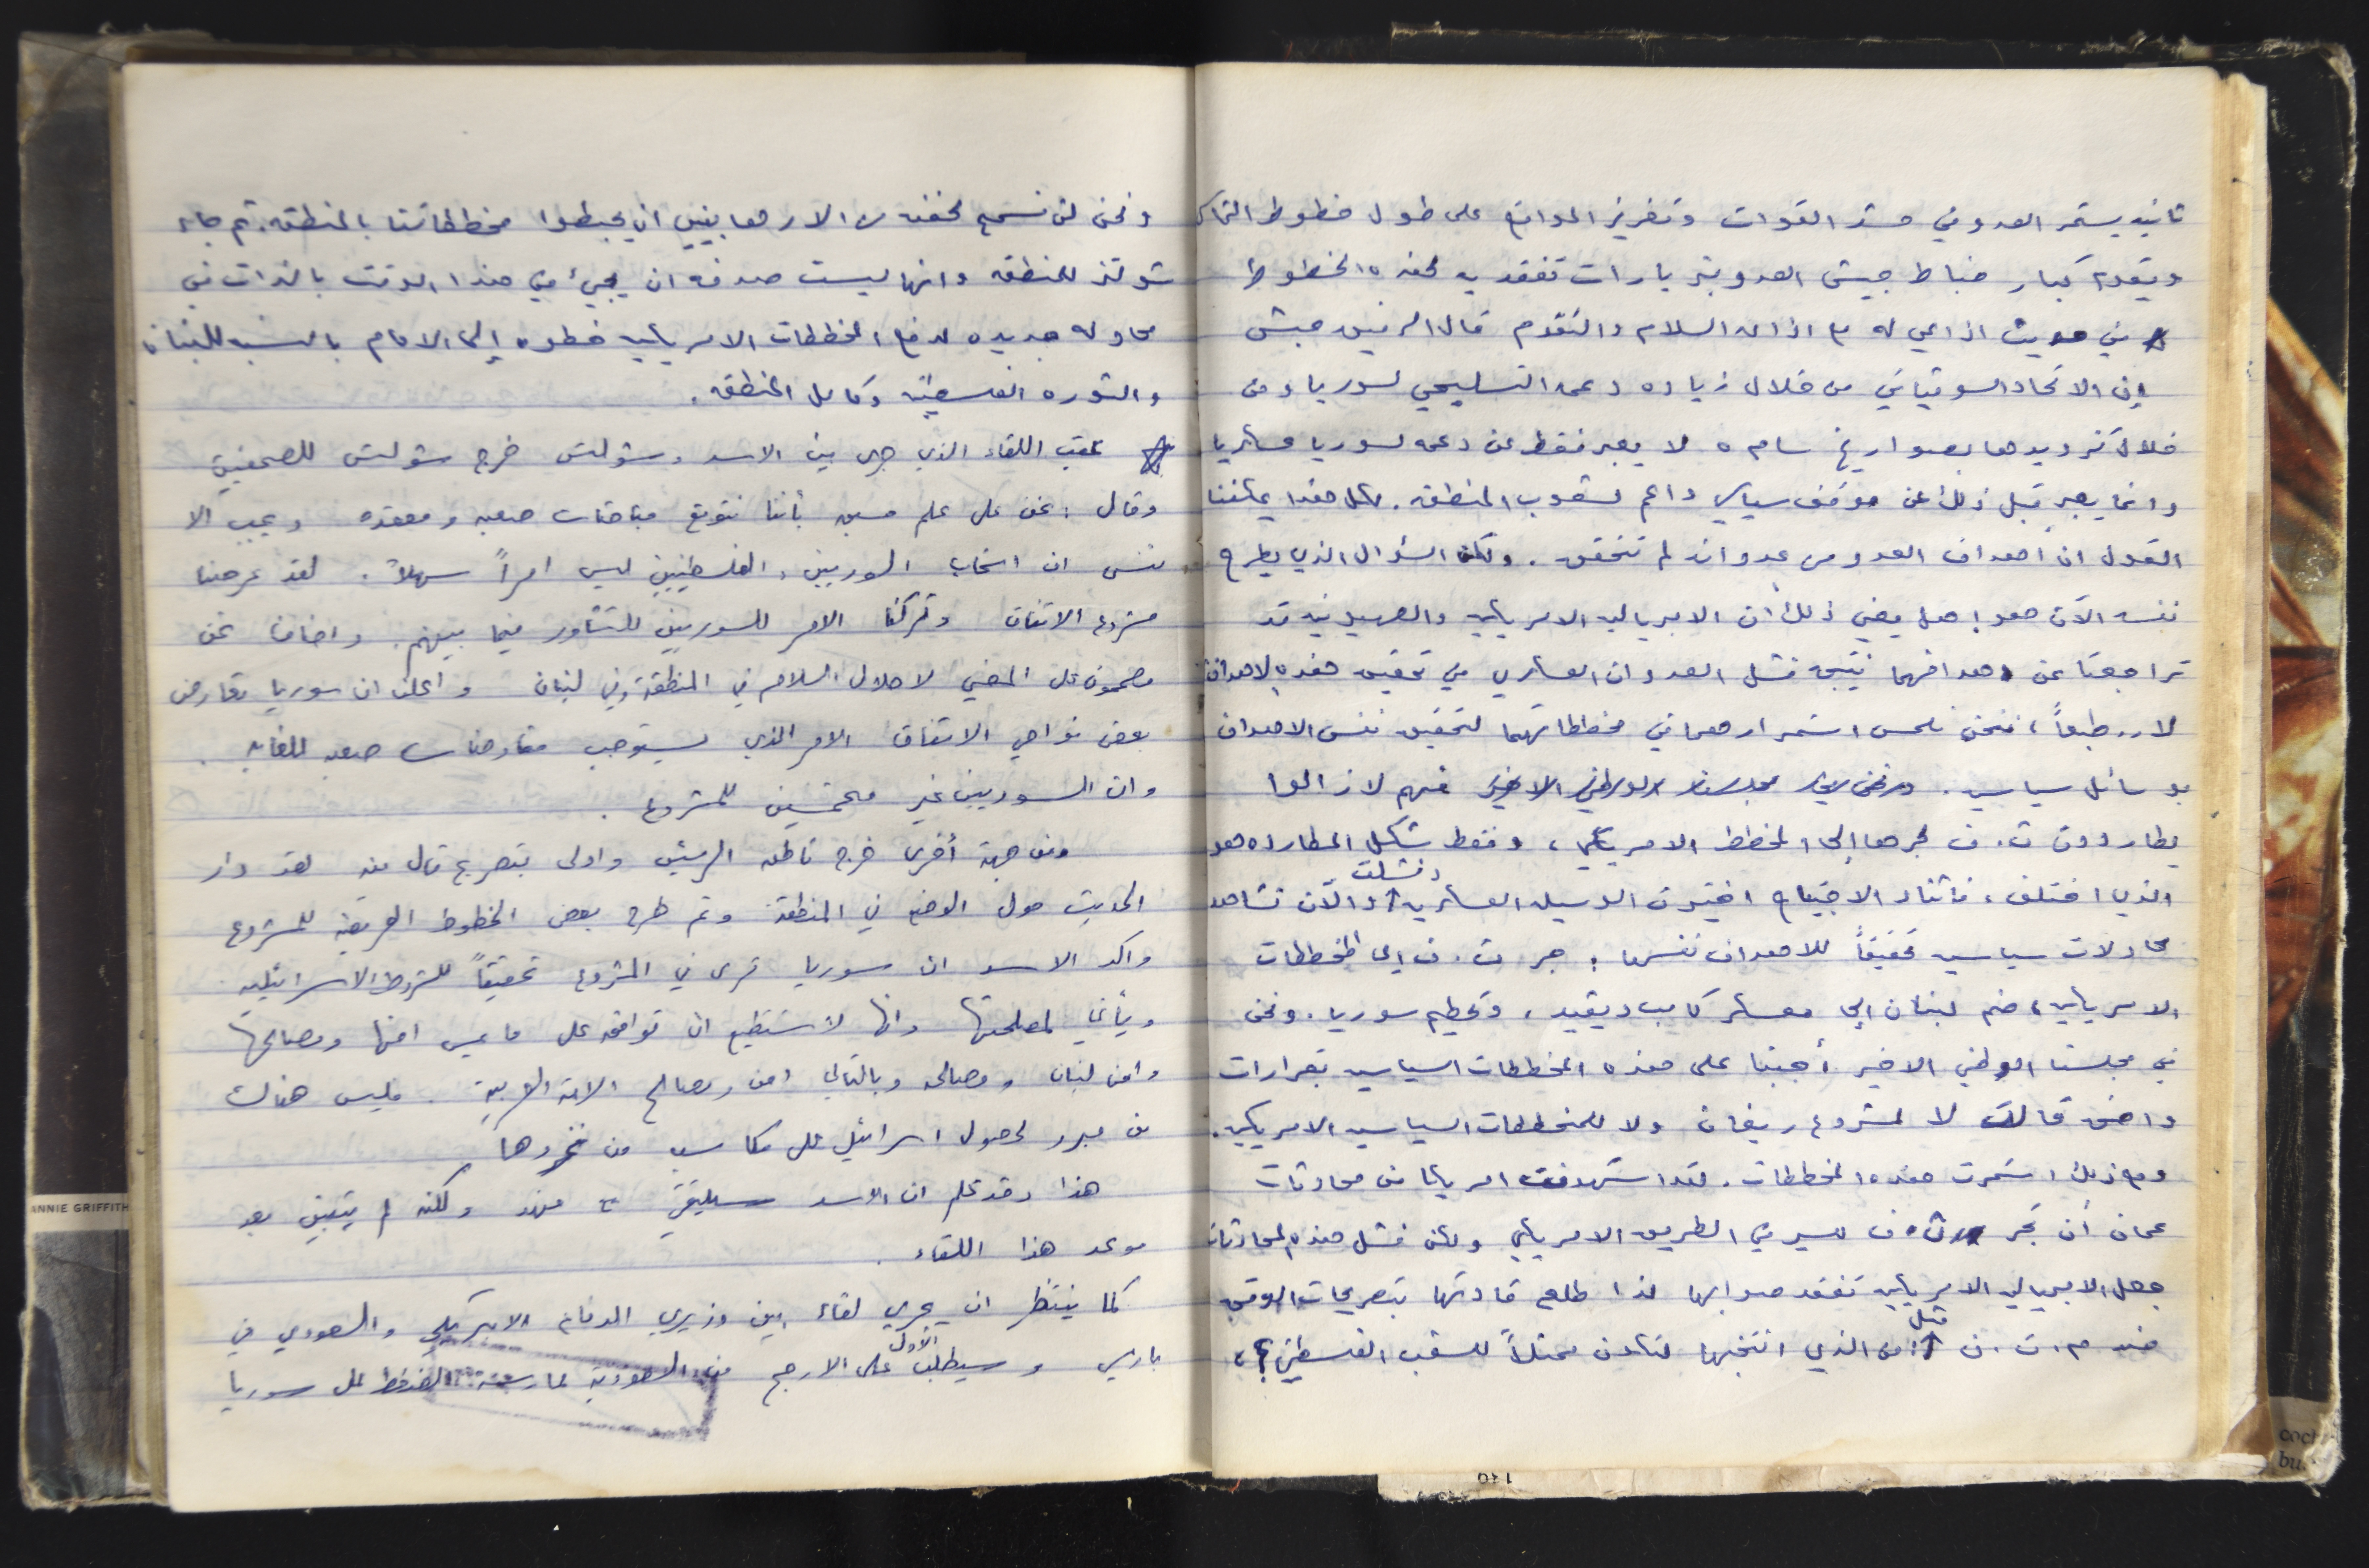 ثانيه يستمر العدو في حشد القوات وتعزيز المواقع على طول خطوط التماس
ويقوم كبار ضباط جيش العدو بزيارات تفقديه لهذه الخطوط
* في حديث اذاعي له مع اذاعه السلام والتقدم قال الرفيق حبش
إن الاتحاد السوفياتي من خلال زياده دعمه التسليحي لسوريا ومن
خلال تزويدها بصواريخ سام ٥ لا يعبر فقط عن دعمه لسوريا عسكريا
وانما يعبر قبل ذلك عن موقف سياسي داعم لشعوب المنطقه. لكل هذا يمكننا
القول ان اهداف العدو من عدوانه لم تتحقق. ولكن السؤال الذي يطرح
نفسه الآن هو: هل يعني ذلك أن الامبرياليه الامريكيه والصهيونيه قد
تراجعتا عن اهدافهما نتيجه فشل العدوان العسكري في تحقيق هذه الاهداف؟
لا.. طبعاً، فنحن نلمس استمرارهما في مخططاتهما لتحقيق نفس الاهداف
بوسائل سياسيه. ونحن في مجلسنا الوطني الاخير فهم لازالوا
يطاردون ت. ف لجرها إلى المخطط الامريكي، وفقط شكل المطارده هو
وفشلت
الذي اختلف، فاثناء الاجتياح اختيرت الوسيله العسكريه والآن نشاهد
محاولات سياسيه تحقيقاً للاهداف نفسها: جر ت. ف إلى المخططات
الامريكيه، ضم لبنان إلى معسكر كامب ديفيد، وتحطيم سوريا. ونحن
في مجلسنا الوطني الاخير أجبنا على هذه المخططات السياسيه بقرارات
واضحه قالت لا لمشروع ريغان ولا للمخططات السياسيه الامريكيه.
ومع ذلك استمرت هذه المخططات. لقد استهدفت امريكا من محادثات
عمان أن تجر م ت ف للسير في الطريق الامريكي ولكن فشل هذه المحادثات
جعل الامبرياليه الامريكيه تفقد صوابها لذا طلع قادتها بتصريحات الوقحه
قبل
ضد م. ت. ف من الذي انتخبها لتكون ممثلاً للشعب الفلسطيني؟،
ونحن لن نسمح لحفنه من الارهابيين ان يحبطوا مخططاتنا بالمنطقه. ثم جاء
شولتز للمنطقه وانها ليست صدفه ان يجيئ في هذا الوقت بالذات في
محاوله جديده لدفع المخططات الامريكيه خطوه إلى الامام بالنسبه للبنان
والثوره الفلسطينيه وكامل المنطقه.
* عقب اللقاء الذي جرى بين الاسد وشولتس خرج شولتس للصحفيين
وقال: نحن على علم مسبق بأننا نتوقع مباحثات صعبه ومعقده ويجب ألا
ننسى ان انسحاب السوريين والفلسطينيين ليس امراً سهلاً. لقد عرضنا
مشروع الاتفاق وتركنا الامر للسوريين للتشاور فيما بينهم. واضاف نحن
مصممون على المضي لاحلال السلام في المنطقة وفي لبنان واعلن ان سوريا تعارض
بعض نواحي الاتفاق الامر الذي يستوجب مفاوضات صعبه للغايه.
وان السوريين غير متحمسين للمشروع.
ومن جهة أخرى خرج ناطق الرئيس وادلى بتصريح قال فيه لقد دار
الحديث حول الوضع في المنطقة وتم طرح بعض الخطوط العريضة للمشروع
واكد الاسد ان سوريا ترى في المشروع تحقيقاً للشروط الاسرائيليه
ويأتي لمصلحتها وانها لا تستطيع ان توافق على ما يمس امنها ومصالحها
وامن لبنان ومصالحه وبالتالي امن ومصالح الامة العربية. فليس هناك
من مبرر لحصول اسرائيل على مكاسب من غزوها
هذا وقد علم ان الاسد سيلتقي مع فهد ولكنه لم يتعين بعد
موعد هذا اللقاء.
كما ينتظر ان يجري لقاء بين وزيري الدفاع الامريكي والسعودي في
الأول
باريس وسيطلب على الارجح من السعودية لممارسة الضغط على سوريا
ANNIE GRIFFITH